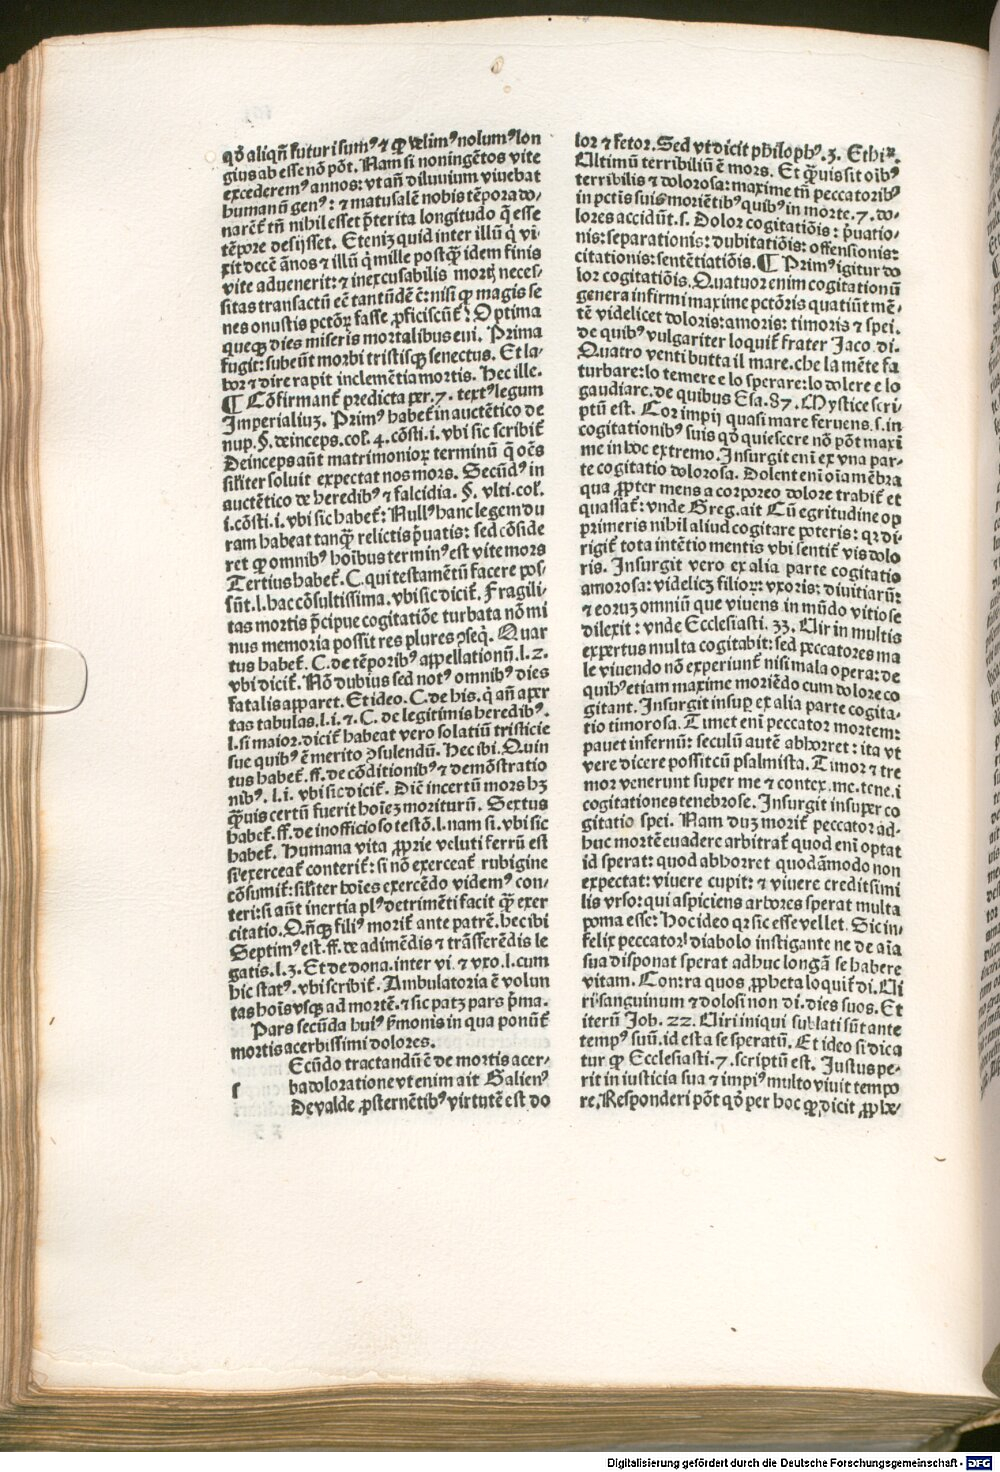 qđ aliqñ futuri sumꝰ ⁊ ꝙ velimꝰ nolumꝰ lon
gius ab esse nō pōt. Nam si noningētos vite
excederemꝰ annos: vt añ diluuium viuebat
humanū genꝰ: ⁊ matusalē nobis tēpora do⸗
naret̄ tñ nihil esset p̄terita longitudo q̄ esse
tēpore desijsset. Eteniʒ quid inter illū q̇ vi⸗
xit decē ānos ⁊ illū q̇ mille postꝙ̄ idem finis
vite aduenerit: ⁊ inexcusabilis mortꝭ neces⸗
sitas transactū eē tantūdē ē: nisi ꝙ magis se
nes onustis pctōꝝ fasse ꝓficiscunt̄? Optima
queqꝫ dies miseris mortalibus eui. Prima
fugit: subeūt morbi tristisqꝫ senectus. Et la⸗
bor ⁊ dire rapit inclemētia mortis. Hec ille.
¶ Cōfirmant̄ predicta per .7. textꝰ legum
Imperialiuʒ. Primꝰ habet̄ in auctētico de
nup. §. deinceps. col̄. 4. cōsti. i. vbi sic scribit̄
Deinceps aūt matrimonioꝝ terminū q̄ oēs
sil̄iter soluit expectat nos mors. Secūdꝰ in
auctētico de heredibꝰ ⁊ falcidia. §. vlti. col̄.
i. cōsti. i. vbi sic habet̄: Nullꝰ hanc legem du
ram habeat tanꝙ̄ relictis p̄uatis: sed cōside
ret ꝙ omnibꝰ hoībus terminꝰ est vite mors
Tertius habet̄. C. qui testamētū facere pos⸗
sūt. l. hac cōsultissima. vbi sic dicit̄. Fragili⸗
tas mortis p̄cipue cogitatiōe turbata nō mi
nus memoria possit res plures ꝯseq̇. Quar
tus habet̄. C. de tēporibꝰ appellationū. l. 2.
vbi dicit̄. Nō dubius sed notꝰ omnibꝰ dies
fatalis apparet. Et ideo. C. de his. q̇ añ aper
tas tabulas. l. i. ⁊. C. de legitimis heredibꝰ.
l. si maior. dicit̄ habeat vero solatiū tristicie
sue quibꝰ ē merito ꝯsulendū. Hec ibi. Quin
tus habet̄. ff. de cōditionibꝰ ⁊ demōstratio
nibꝰ. l. i. vbi sic dicit̄. Diē incertū mors hʒ
ꝙ̄uis certū fuerit hoīeʒ moriturū. Sextus
habet̄. ff. de inofficioso testō. l. nam si. vbi sic
habet̄. Humana vita ꝓprie veluti ferrū est
si exerceat̄ conterit̄: si nō exerceat̄ rubigine
cōsumit̄: sil̄iter hoīes exercēdo videmꝰ con⸗
teri: si aūt inertia plꝰ detrimēti facit ꝙ̄ exer
citatio. Oñqꝫ filiꝰ morit̄ ante patrē. hec ibi
Septimꝰ est. ff. de adimēdis ⁊ trāsferēdis le
gatis. l. 3. Et de dona. inter vi. ⁊ vxo. l. cum
hic statꝰ. vbi scribit̄. Ambulatoria ē volun
tas hoīs vsqꝫ ad mortē. ⁊ sic patʒ pars p̄ma.
Pars secūda huiꝰ ẜmonis in qua ponunt̄
mortis acerbissimi dolores.
s Ecūdo tractandū ē de mortis acer⸗
ba doloratione vt enim ait Galienꝰ
De valde ꝓsternētibꝰ virtutē est do
lor ⁊ fetor. Sed vt dicit philophꝰ. 3. Ethiꝝ.
Ultimū terribiliū ē mors. Et ꝙ̄uis sit oībꝰ
terribilis ⁊ dolorosa: maxime tñ peccatoribꝰ
in pctīs suis moriētibꝰ quibꝰ in morte .7. do⸗
lores accidūt. s. Dolor cogitatiōis: p̄uatio⸗
nis: separationis: dubitatiōis: offensionis:
citationis: sententiatiōis. ¶ Primꝰ igitur do
lor cogitatiōis. Quatuor enim cogitationū
genera infirmi maxime pctōris quatiūt mē⸗
tē videlicet doloris: amoris: timoris ⁊ spei.
de quibꝰ vulgariter loquit̄ frater Jaco. di.
Quatro venti butta il mare. che la mēte fa
turbare: lo temere e lo sperare: lo dolere e lo
gaudiare. de quibus Esa. 87. Mystice scri⸗
ptū est. Cor impij quasi mare feruens. s. in
cogitationibꝰ suis qđ quiescere nō pōt maxi
me in hoc extremo. Insurgit enī ex vna par⸗
te cogitatio dolorosa. Dolent enī oīa mēbra
qua ꝓpter mens a corporeo dolore trahit̄ et
quassat̄: vnde Greg. ait Cū egritudine op
primeris nihil aliud cogitare poteris: qꝛ di⸗
rigit̄ tota intētio mentis vbi sentit̄ vis dolo
ris. Insurgit vero ex alia parte cogitatio
amorosa: videlicʒ filioꝝ: vxoris: diuitiarū:
⁊ eoruʒ omniū que viuens in mūdo vitiose
dilexit: vnde Ecclesiasti. 33. Uir in multis
expertus multa cogitabit: sed peccatores ma
le viuendo nō experiunt̄ nisi mala opera: de
quibꝰ etiam maxime moriēdo cum dolore co
gitant. Insurgit insuꝑ ex alia parte cogita⸗
tio timorosa. Timet enī peccator mortem:
pauet infernū: seculū autē abhorret: ita vt
vere dicere possit cū psalmista. Timor ⁊ tre
mor venerunt super me ⁊ contex. me. tene. i
cogitationes tenebrose. Insurgit insuper co
gitatio spei. Nam duʒ morit̄ peccator ad⸗
huc mortē euadere arbitrat̄ quod enī optat
id sperat: quod abhorret quodāmodo non
expectat: viuere cupit: ⁊ viuere credit simi
lis vrso: qui aspiciens arbores sperat multa
poma esse: Hoc ideo qꝛ sic esse vellet. Sic in⸗
felix peccator diabolo instigante ne de aīa
sua disponat sperat adhuc longā se habere
vitam. Contra quos ꝓpheta loquit̄ di. Ui
ri sanguinum ⁊ dolosi non di. dies suos. Et
iterū Job. 22. Uiri iniqui sublati sūt ante
tempꝰ suū. id est a se speratū. Et ideo si dica
tur ꝙ Ecclesiasti. 7. scriptū est. Justus pe⸗
rit in iusticia sua ⁊ impiꝰ multo viuit tempo
re. Responderi pōt qđ per hoc ꝙ dicit ꝓphe⸗
Digitalisierung gefördert durch die Deutsche Forschungsgemeinschaft - DFG